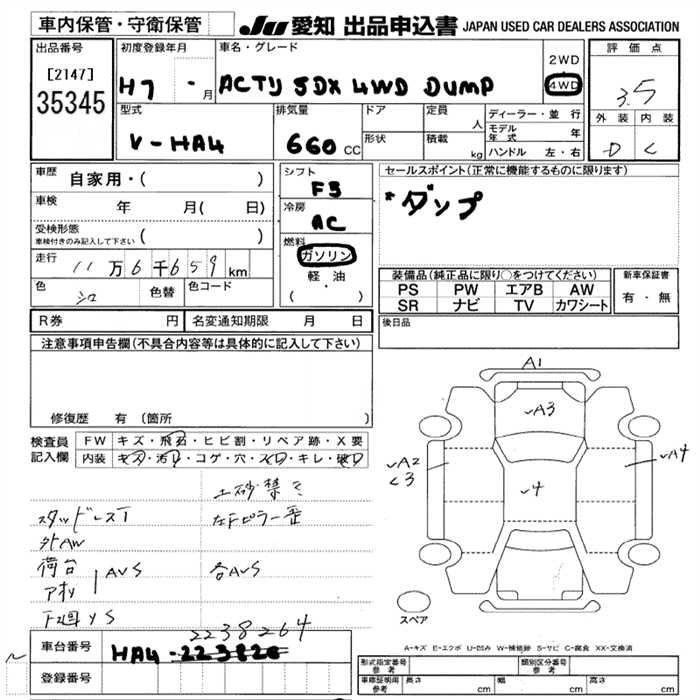 車内保管・守衛保管
JU 愛知 出品申込書 JAPAN USED CAR DEALERS ASSOCIATION
出品番号
[2147]
35345
初度登録年月
H7 - 月
車名・グレード
ACTY SDX 4WD DUMP
2WD
4WD
評価点
3.5
外装 内装
D C
型式
V-HA4
排気量
660 CC
ドア
形状
定員
人
積載
kg
ディーラー・並行
モデル年式 年
ハンドル 左・右
車歴 自家用・( )
車検 年 月( 日)
受検形態
車検付きのみ記入して下さい ( )
走行 11万6千659km
色 シロ 色替 色コード
シフト
F5
冷房
AC
燃料
ガソリン
軽・油
( ・ )
セールスポイント(正常に機能するものに限ります)
*ダンプ
装備品(純正品に限り○をつけてください)
PS PW エアB AW
SR ナビ TV カワシート
新車保証書
有・無
後日品
R券 円 名変通知期限 月 日
注意事項申告欄(不具合内容等は具体的に記入して下さい)
修復歴 有(箇所
検査員記入欄
FW キズ・飛石・ヒビ割・リペア跡・X要
内装 キズ・汚レ・コゲ・穴・スレ・キレ・破レ
土砂禁ぐ
スタッドレスT 左Fピラー歪
外AW
荷台 AVS 各AVS
アオリ
下廻りS
A1
A3
A2
<3
4
A4
スペア
A-キズ E-エクボ U-凹み W-補修跡 S-サビ C-腐食 XX-交換済
2238264
車台番号 HA4-223826
登録番号
型式指定番号 参考
類別区分番号 参考
車庫証明用 参考 長さ cm 幅 cm 高さ cm